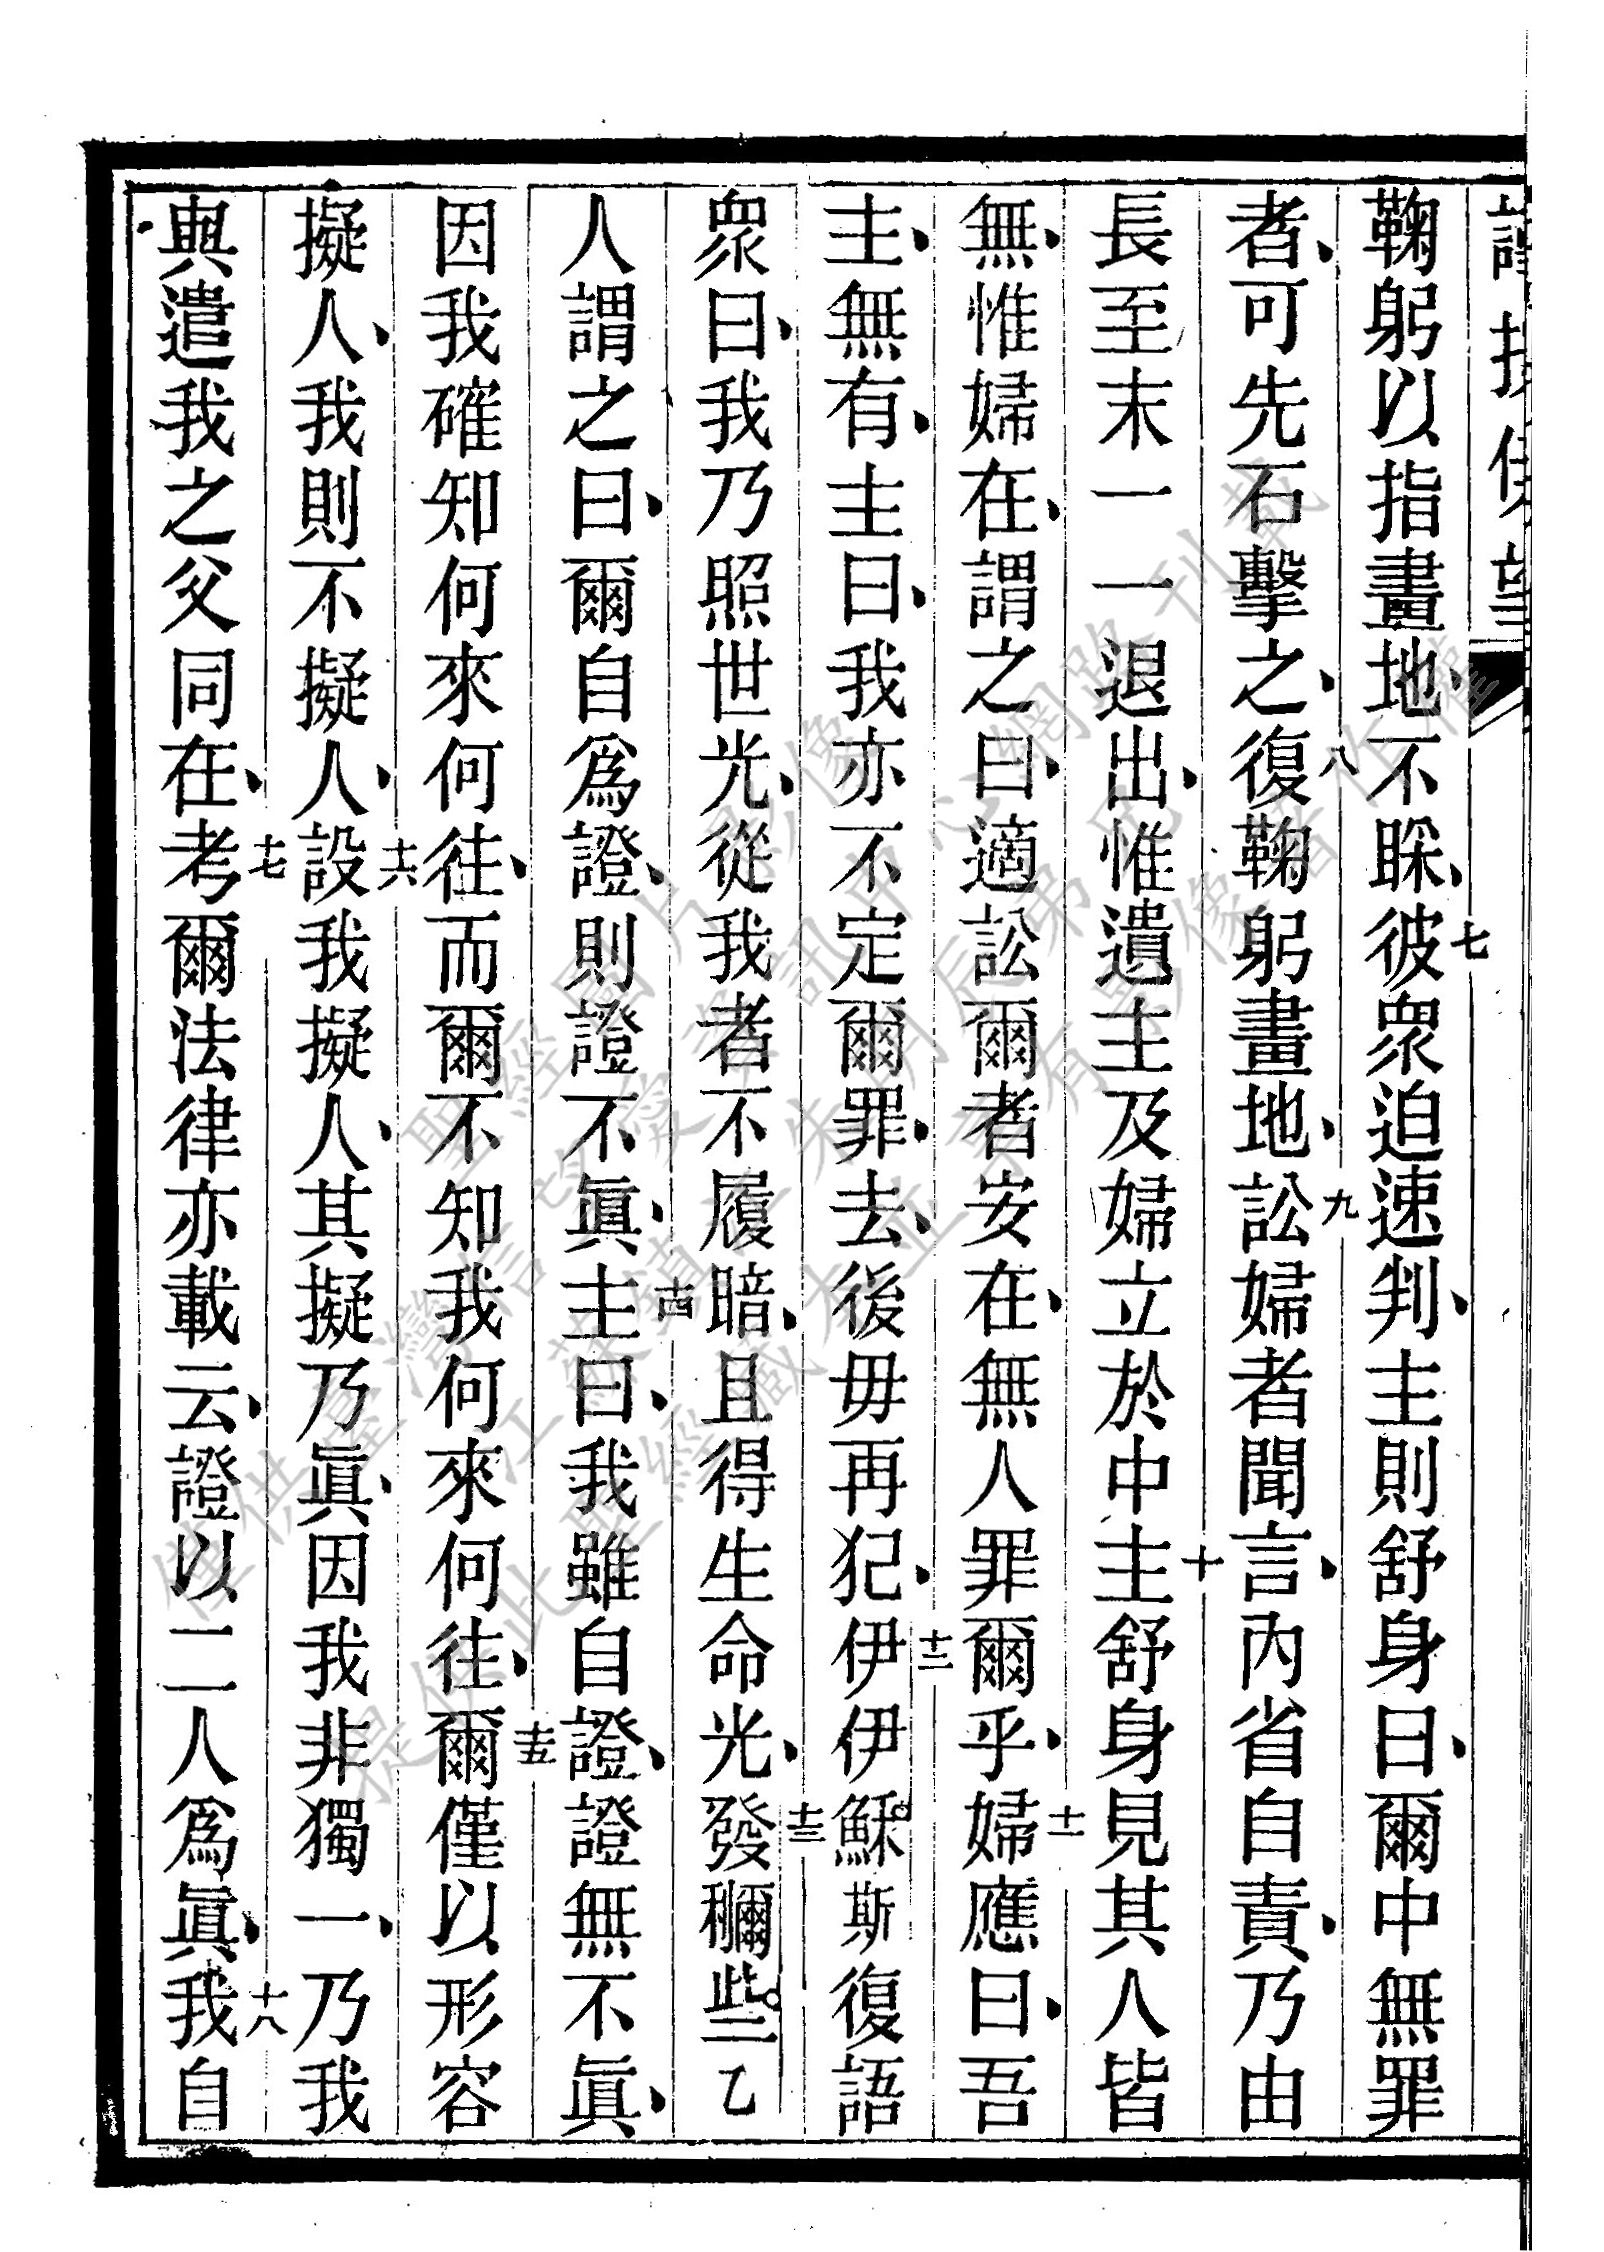 鞠躬以指畫地、不睬、七彼眾迫速判、主則舒身曰、爾中無罪
者、可先石擊之、八復鞠躬畫地、九訟婦者聞言、內省自責、乃由
長至末一一退出、惟遺主及婦立於中、十主舒身見其人皆
無、惟婦在、謂之曰、適訟爾者安在、無人罪爾乎、十一婦應曰、吾
主、無有、主曰、我亦不定爾罪、去、後毋再犯、十二伊伊穌斯復語
眾曰、我乃照世光、從我者不履暗、且得生命光、十三發穪些二乙
人謂之曰、爾自為證、則證不眞、十四主曰、我雖自證、證無不眞、
因我確知何來何往、而爾不知我何來何往、十五爾僅以形容
擬人、我則不擬人、十六設我擬人、其擬乃眞、因我非獨一、乃我
與遣我之父同在、十七考爾法律亦載云、證以二人為眞、十八我自